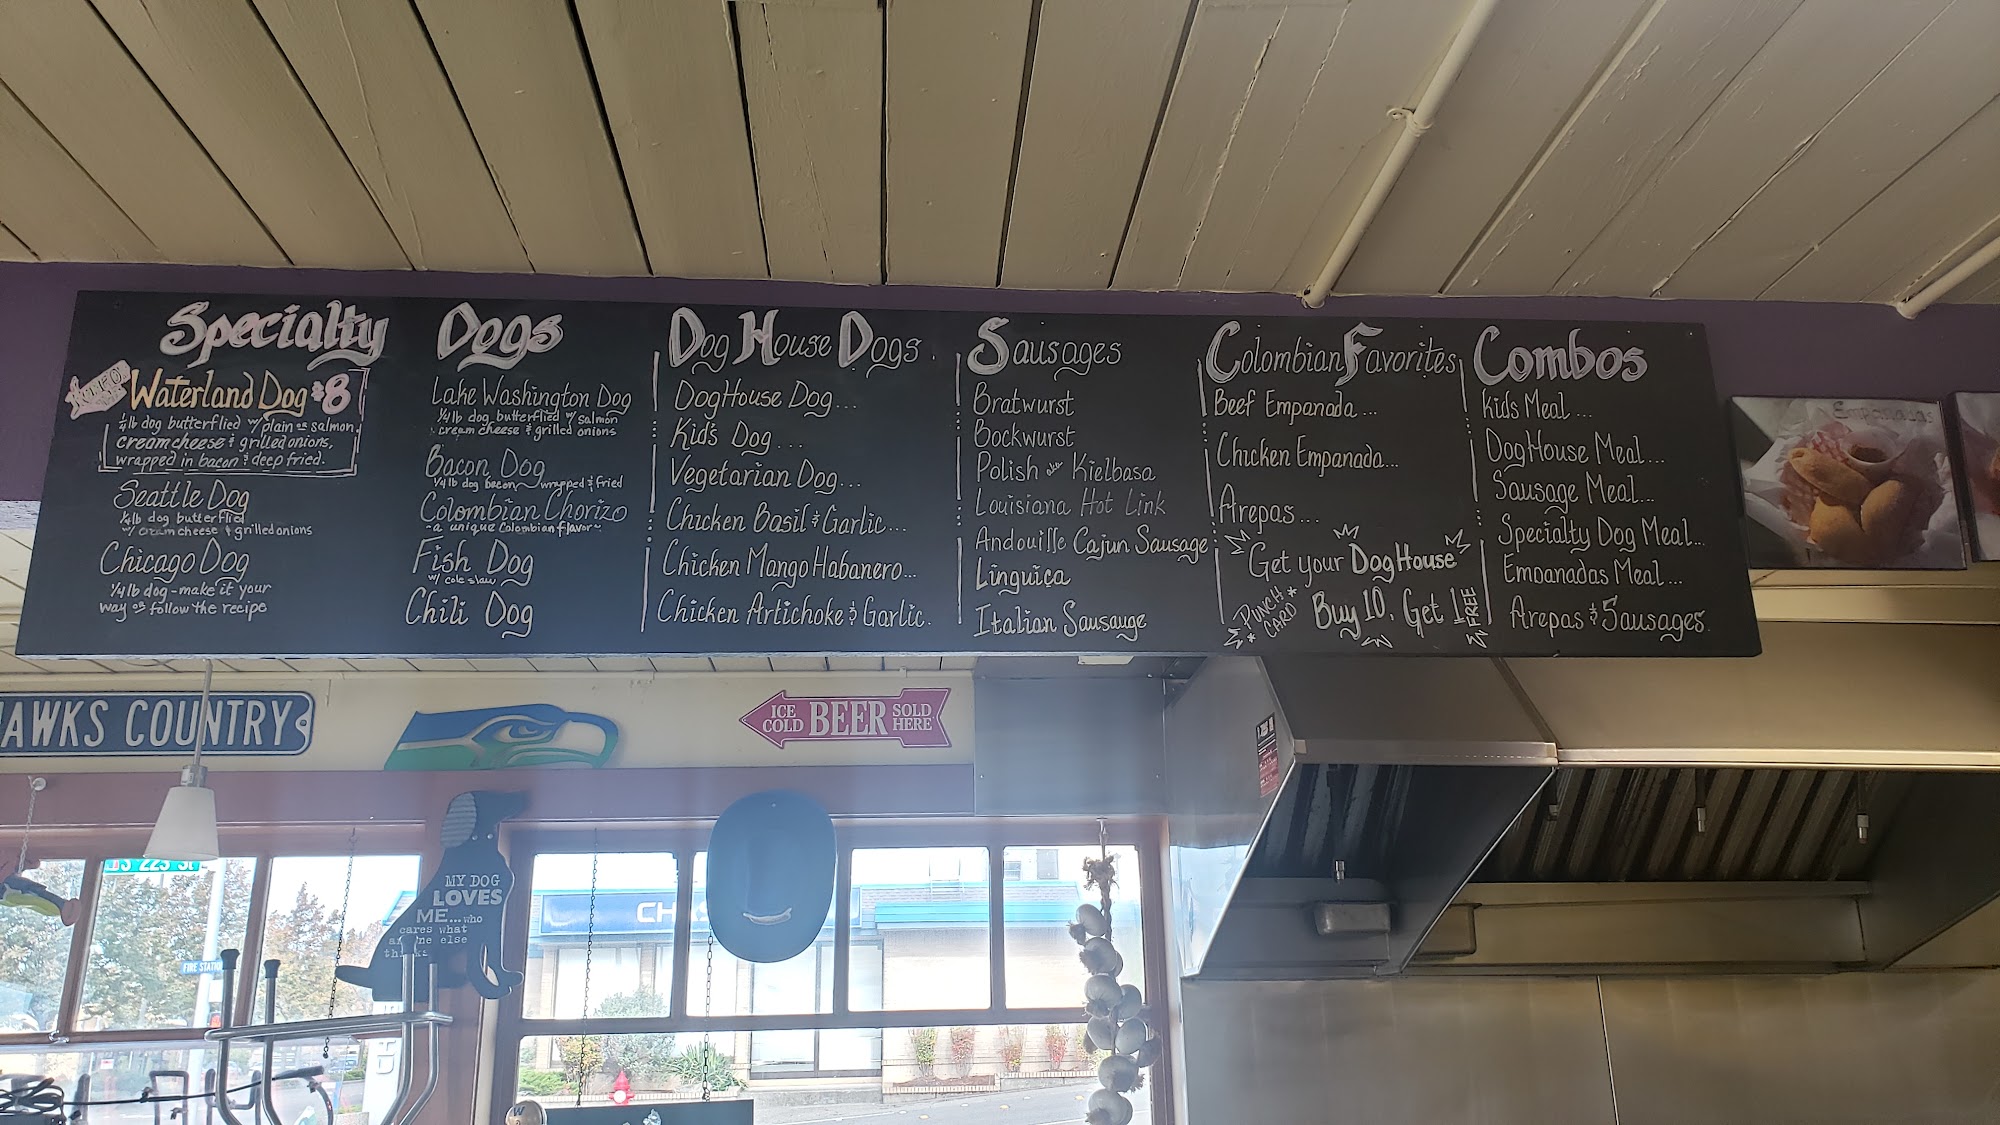 Specialty Dogs
Waterland Dog $8
1/4 lb dog butterflied w/ plain or salmon
cream cheese & grilled onions,
wrapped in bacon & deep fried.
Seattle Dog
1/4 lb dog butterflied
w/ cream cheese & grilled onions
Chicago Dog
1/4 lb dog - make it your
way or follow the recipe
Lake Washington Dog
1/4 lb dog butterflied w/ salmon
cream cheese & grilled onions
Bacon Dog
1/4 lb dog bacon wrapped & fried
Colombian Chorizo
- a unique Colombian flavor -
Fish Dog
w/ cole slaw
Chili Dog
Dog House Dogs.
DogHouse Dog...
Kid's Dog...
Vegetarian Dog...
Chicken Basil & Garlic...
Chicken Mango Habanero...
Chicken Artichoke & Garlic.
Sausages
Bratwurst
Bockwurst
Polish aka Kielbasa
Louisiana Hot Link
Andouille Cajun Sausage
Linguiça
Italian Sausauge
Colombian Favorites
Beef Empanada...
Chicken Empanada...
Arepas...
Get your DogHouse
PUNCH CARD
Buy 10, Get 1 FREE
Combos
Kids Meal...
DogHouse Meal...
Sausage Meal...
Specialty Dog Meal...
Empanadas Meal...
Arepas & Sausages.
Empanadas
AWKS COUNTRY
ICE COLD BEER SOLD HERE
MY DOG
LOVES
ME...who
cares what
else
S 223 St
FIRE STATION